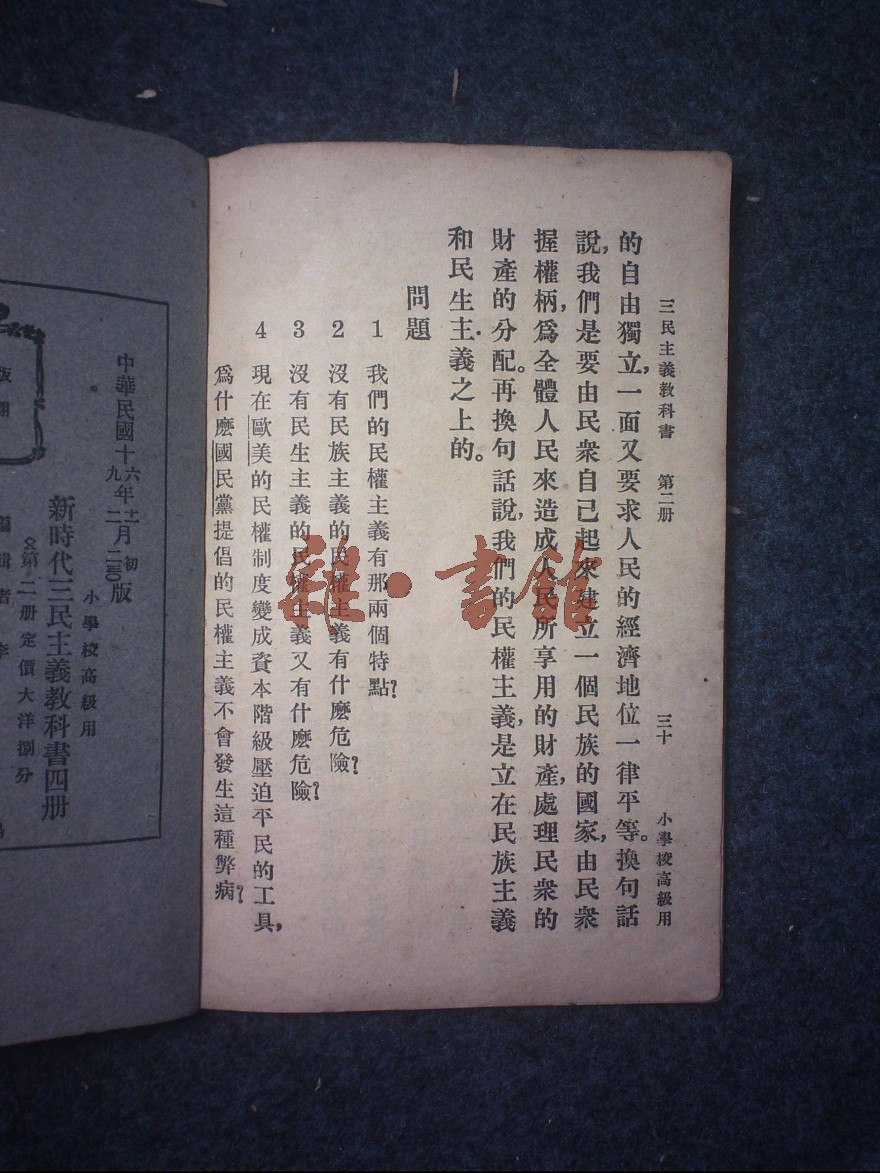 三民主義教科書 第二册 三十 小學校高級用
的自由獨立,一面又要求人民的經濟地位一律平等。換句話
說,我們是要由民衆自己起來建立一個民族的國家,由民衆
握權柄,爲全體人民來造成人民所享用的財產,處理民衆的
財產的分配。再換句話說,我們的民權主義,是立在民族主義
和民生主義之上的。
問題
1 我們的民權主義有那兩個特點?
2 沒有民族主義的民權主義有什麽危險?
3 沒有民生主義的民權主義又有什麽危險?
4 現在歐美的民權制度變成資本階級壓迫平民的工具,
爲什麽國民黨提倡的民權主義不會發生這種弊病?
雜·書館
中華民國十六年十二月初版
十九年二月二三〇版
小學校高級用
新時代三民主義教科書四册
第二册定價大洋捌分
編輯者 李
版